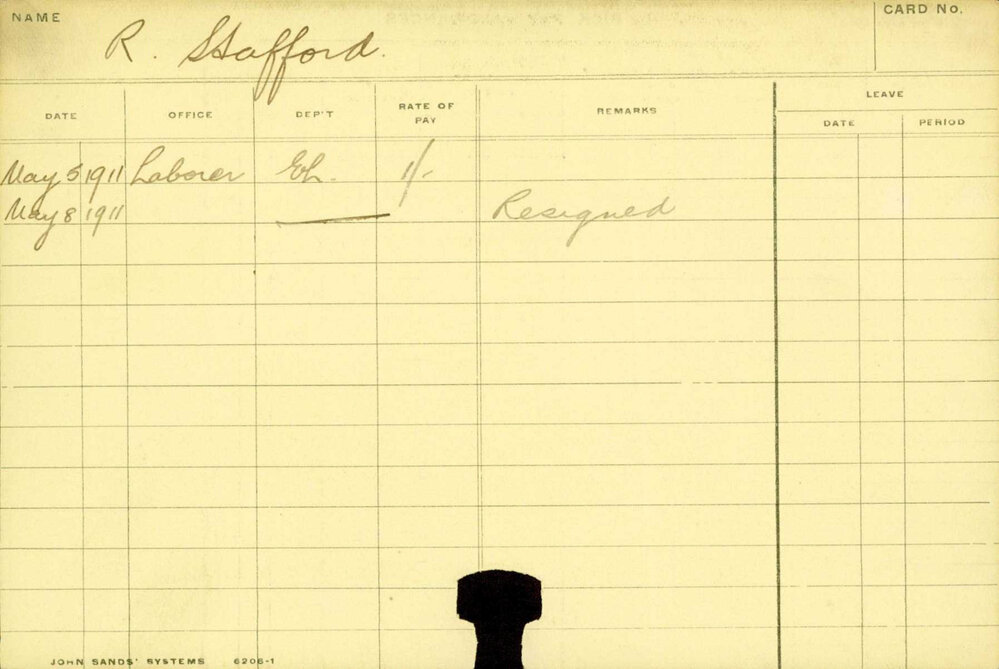 NAME
CARD No.
R. Stafford.
DATE OFFICE DEP'T RATE OF PAY REMARKS LEAVE
DATE PERIOD
May 5 1911 Laborer EL. 1/-
May 8 1911 Resigned
JOHN SANDS' SYSTEMS 6206-1